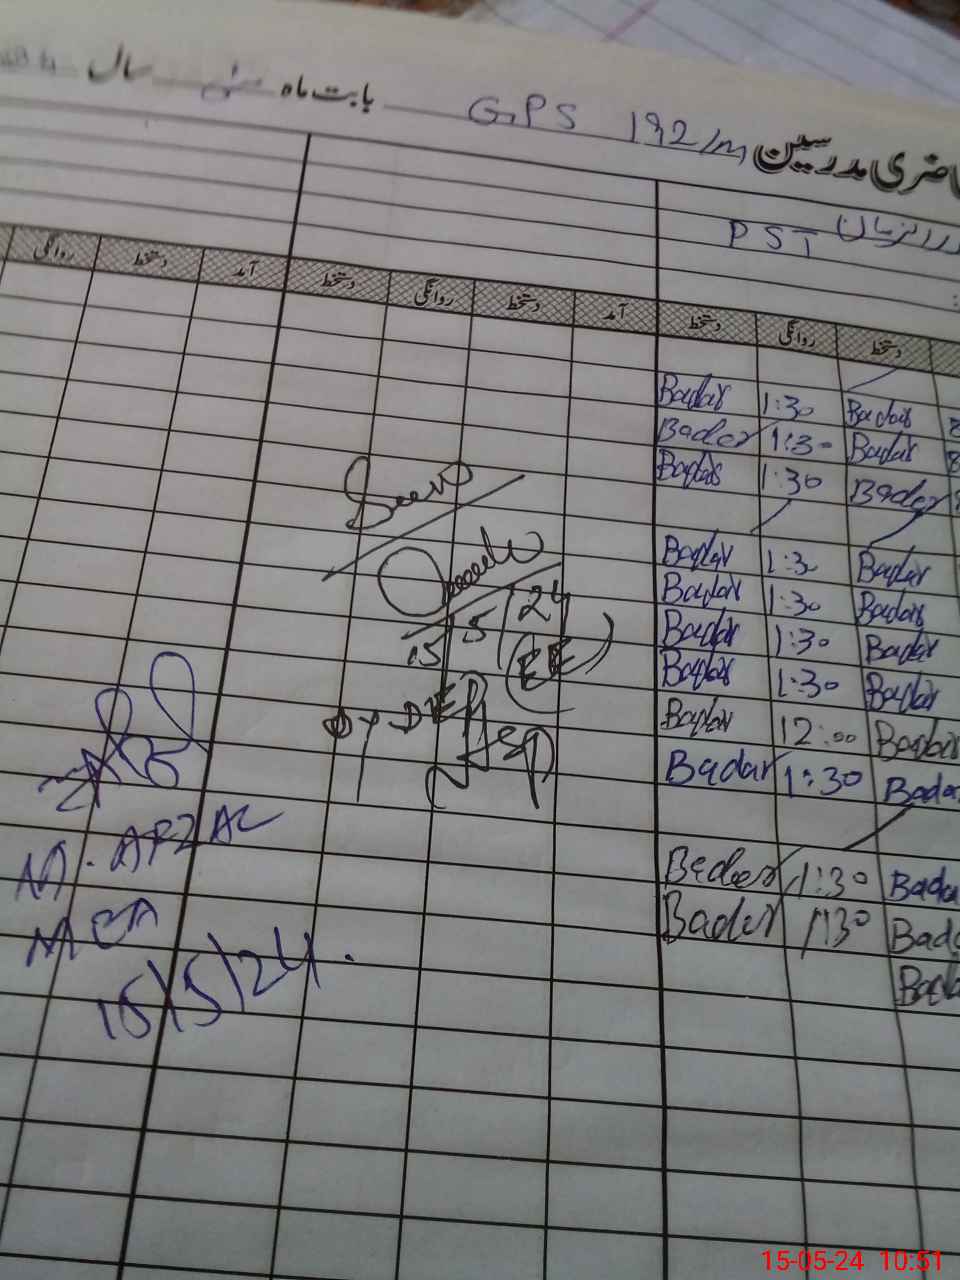 حاضری مدرسین GPS 192/m بابت ماه مئی سال
PST
دستخط روانگی دستخط آمد دستخط روانگی دستخط آمد دستخط روانگی
Badar 1:30 Badar 8
Bader 1:30 Badar 8
Badar 1:30 Bader
Badar 1:30 Badar
Badar 1:30 Badar
Badar 1:30 Badar
Badar 1:30 Badar
Badar 12:00 Badar
Badar 1:30 Badar
Bader 1:30 Bada
Bader 1:30 Bada
Bada
Seen
15/5/24
(EE)
Dy DEO
M. AFZAL
MEA
15/5/24.
15-05-24 10:51